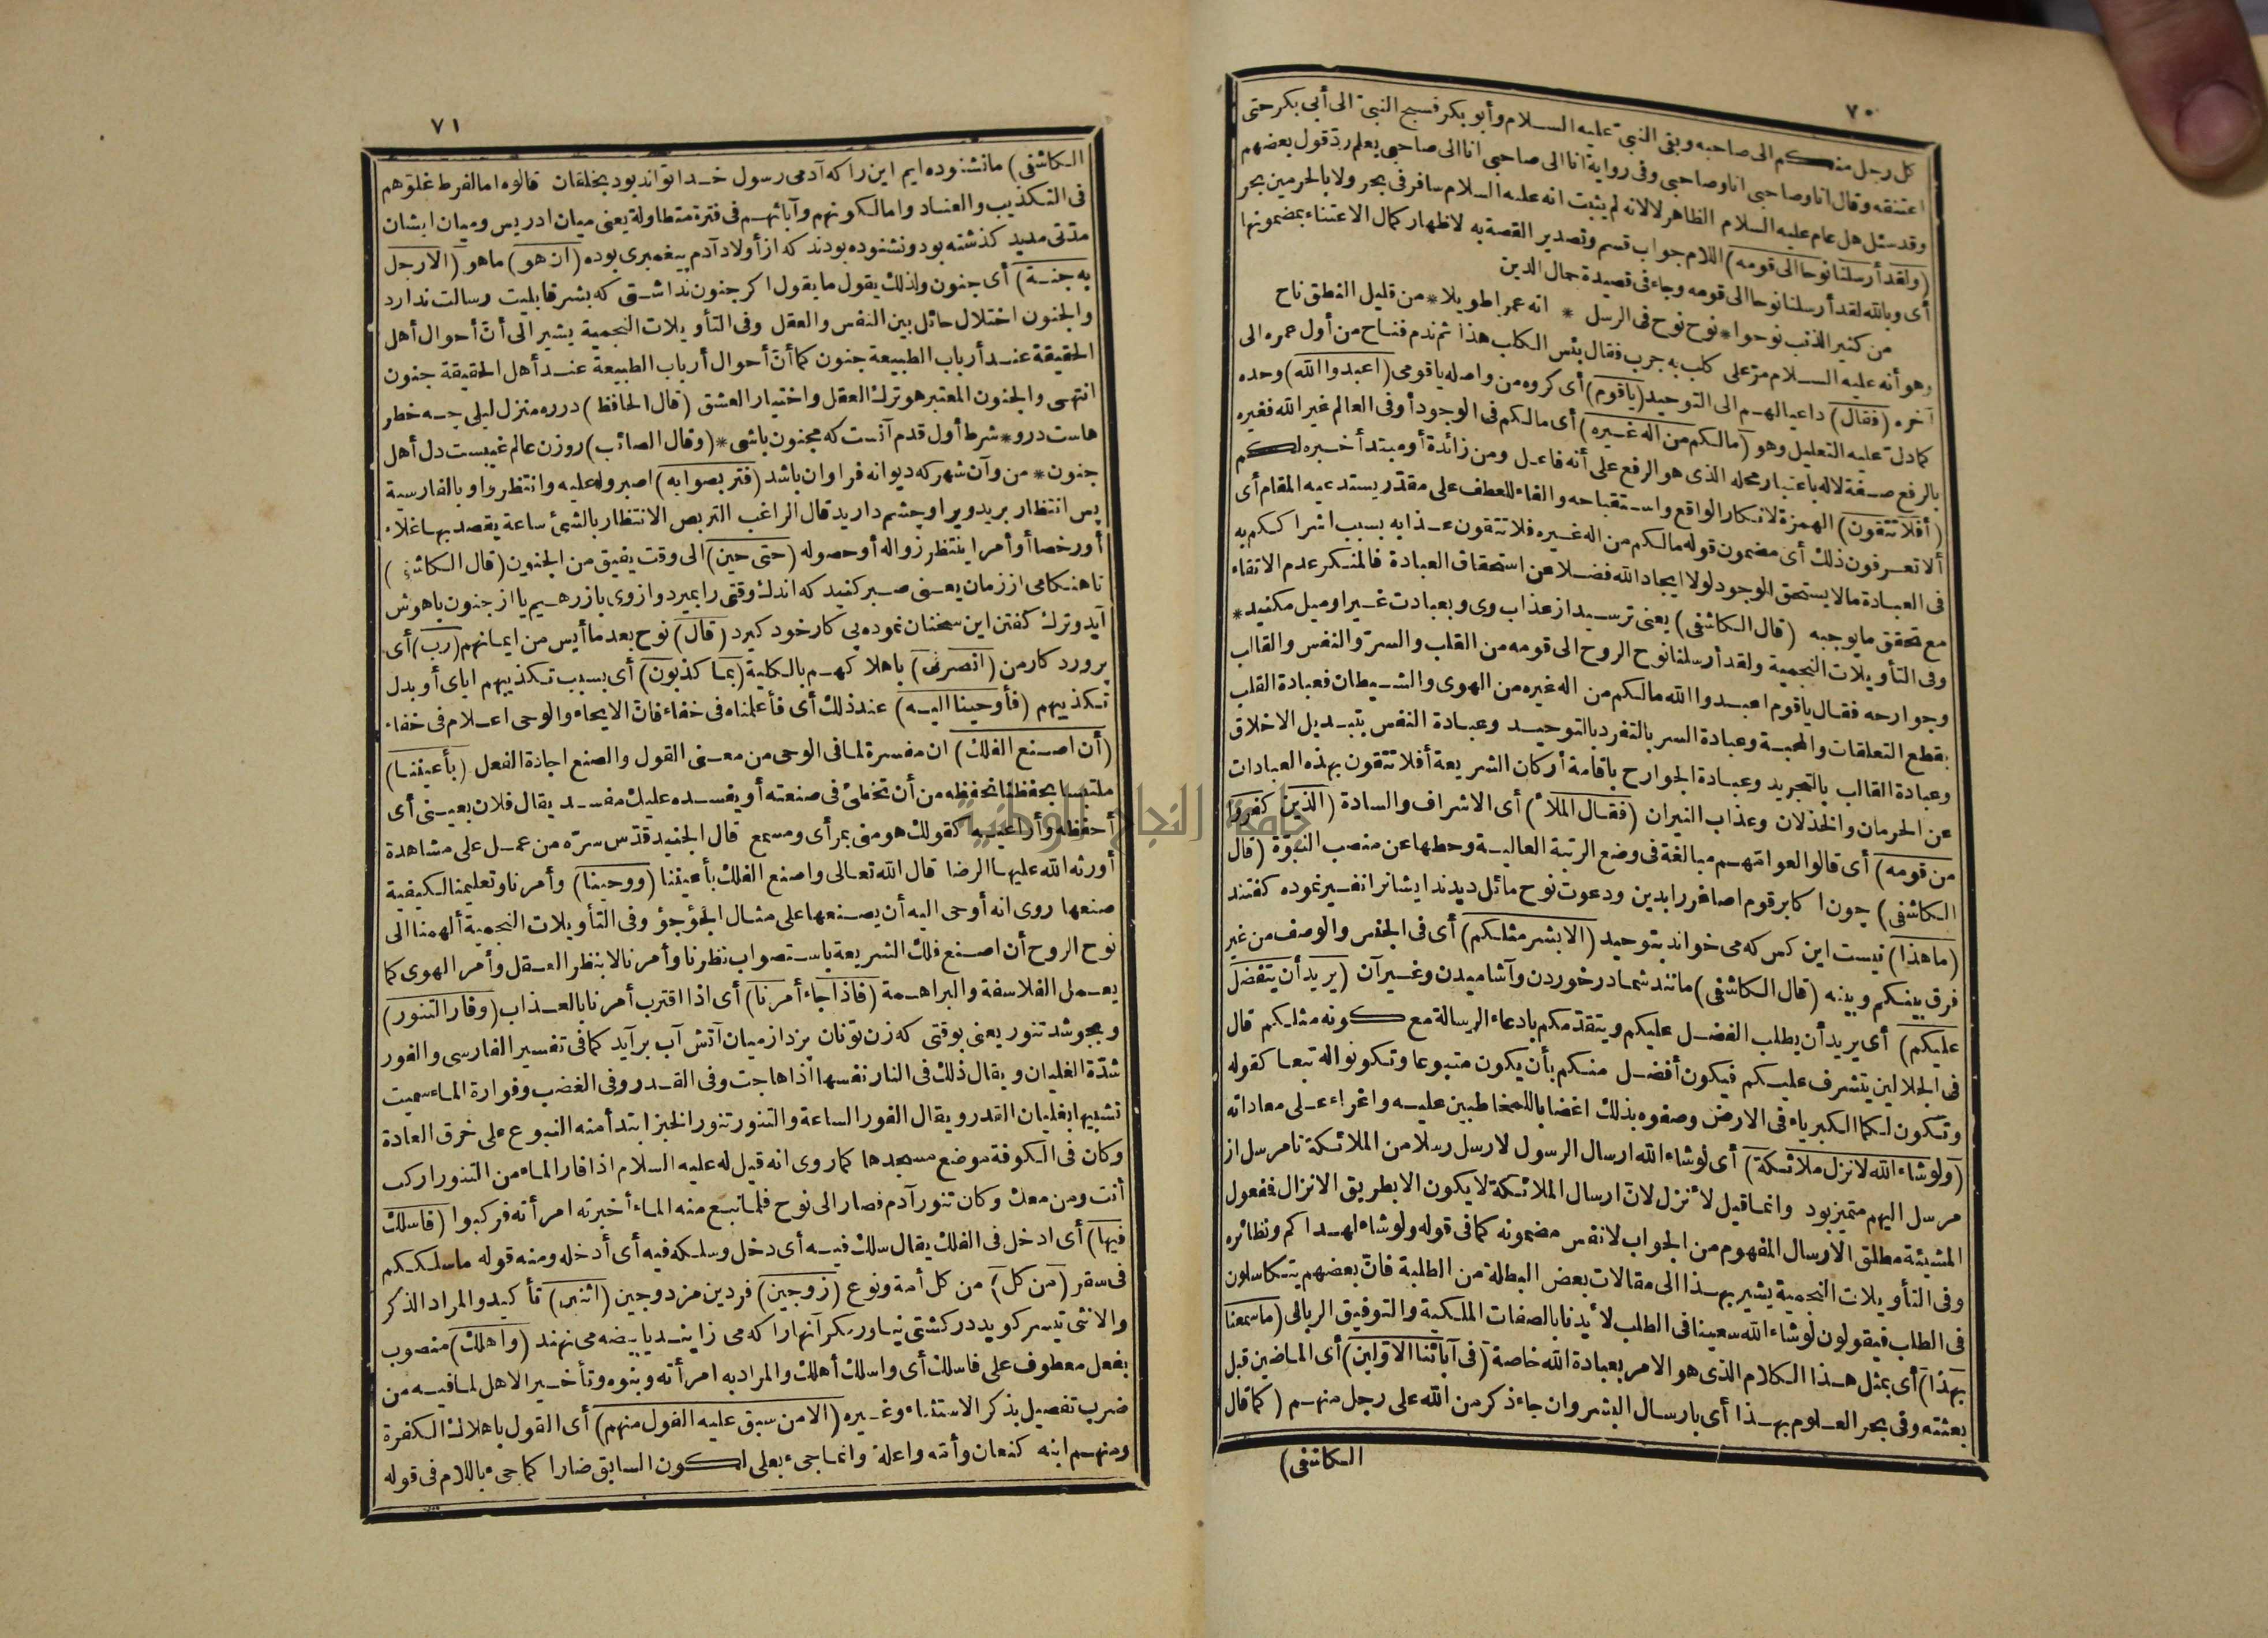 ٧٠
كل رجل منكم الى صاحبه وبقى النبىّ عليه السلام وأبو بكر فسبح النبىّ الى أبى بكر حتى
اعتنقه وقال انا وصاحبى انا وصاحبى وفى رواية انا الى صاحبى انا الى صاحبى يعلم ردّ قول بعضهم
وقد سئل هل عام عليه السلام الظاهر لا لانه لم يثبت انه عليه السلام سافر فى بحر ولا بالحرمين بحر
(ولقد أرسلنا نوحا الى قومه) اللام جواب قسم وتصدير القصة به لاظهار كمال الاعتناء بمضمونها
أى وبالله لقد أرسلنا نوحا الى قومه وجاء فى قصيدة جمال الدين
من كثير الذنب نوحوا * نوح نوح فى الرسل * انه عمرا طويلا * من قليل النطق ناح
وهو أنه عليه السلام مرّ على كلب به جرب فقال بئس الكلب هذا ثم ندم فناح من أول عمره الى
آخره (فقال) داعيا لهم الى التوحيد (ياقوم) أى كروه من واصله ياقومى (اعبدوا الله) وحده
كما دلّ عليه التعليل وهو (مالكم من اله غيره) أى مالكم فى الوجود أو فى العالم غير الله فغيره
بالرفع صفة لاله باعتبار محله الذى هو الرفع على أنه فاعل ومن زائدة أو مبتدأ خبره لكم
(أفلا تتقون) الهمزة لانكار الواقع واستقباحه والفاء للعطف على مقدّر يستدعيه المقام أى
ألا تعرفون ذلك أى مضمون قوله مالكم من اله غيره فلا تتقون عذابه بسبب اشراككم به
فى العبادة مالا يستحق الوجود لولا ايجاد الله فضلا عن استحقاق العبادة فالمنكر عدم الاتقاء
مع تحقق ما يوجبه (قال الكاشفى) يعنى ترسيد از عذاب وى وبعبادت غير او ميل مكنيد *
وفى التأويلات النجمية ولقد أرسلنا نوح الروح الى قومه من القلب والسرّ والنفس والقالب
وجوارحه فقال ياقوم اعبدوا الله مالكم من اله غيره من الهوى والشيطان فعبادة القلب
بقطع التعلقات والمحبة وعبادة السر بالتفرد بالتوحيد وعبادة النفس بتبديل الاخلاق
وعبادة القالب بالتجريد وعبادة الجوارح باقامة أركان الشريعة أفلا تتقون بهذه العبادات
عن الحرمان والخذلان وعذاب النيران (فقال الملأ) أى الاشراف والسادة (الذين كفروا
من قومه) أى قالوا لعوامّهم مبالغة فى وضع الرتبة العالية وحطها عن منصب النبوّة (قال
الكاشفى) چون اكابر قوم اصاغر را بدين ودعوت نوح مائل ديدند ايشانرا نفير نموده كفتند
(ماهذا) نيست اين كس كه مى خواند بتوحيد (الا بشر مثلكم) أى فى الجنس والوصف من غير
فرق بينكم وبينه (قال الكاشفى) مانند شما در خوردن وآشاميدن وغير آن (يريد أن يتفضل
عليكم) أى يريد أن يطلب الفضل عليكم ويتقدّمكم بادعاء الرسالة مع كونه مثلكم قال
فى الجلالين يتشرف عليكم فيكون أفضل منكم بأن يكون متبوعا وتكونوا له تبعا كقوله
وتكون لكما الكبرياء فى الارض وصفوه بذلك اغضابا للمخاطبين عليه واغراء على معاداته
(ولو شاء الله لانزل ملائكة) أى لو شاء الله ارسال الرسول لارسل رسلا من الملائكة تا مرسل از
مرسل اليهم متميز بود وانما قيل لأنزل لانّ ارسال الملائكة لا يكون الا بطريق الانزال فمفعول
المشيئة مطلق الارسال المفهوم من الجواب لا نفس مضمونه كما فى قوله ولو شاء لهداكم ونظائره
وفى التأويلات النجمية يشير بهذا الى مقالات بعض البطلة من الطلبة فانّ بعضهم يتكاسلون
فى الطلب فيقولون لو شاء الله سعينا فى الطلب لأيدنا بالصفات الملكية والتوفيق الربانى (ماسمعنا
بهذا) أى بمثل هذا الكلام الذى هو الامر بعبادة الله خاصة (فى آبائنا الاوّلين) أى الماضين قبل
بعثته وفى بحر العلوم بهذا أى بارسال البشر وان جاء ذكر من الله على رجل منهم (كما قال
الكاشفى)
٧١
الكاشفى) ما نشنوده ايم اين را كه آدمى رسول خدا تواند بود بخلقان قالوه اما لفرط غلوّهم
فى التكذيب والعناد واما لكونهم وآبائهم فى فترة متطاولة يعنى ميان ادريس وميان ايشان
مدّتى مديد كذشته بود ونشنوده بودند كه از أولاد آدم پيغمبرى بوده (ان هو) ماهو (الا رجل
به جنة) أى جنون ولذلك يقول ما يقول اكر جنون نداشتى كه بشر قابليت رسالت ندارد
والجنون اختلال حائل بين النفس والعقل وفى التأويلات النجمية يشير الى أنّ أحوال أهل
الحقيقة عند أرباب الطبيعة جنون كما أنّ أحوال أرباب الطبيعة عند أهل الحقيقة جنون
انتهى والجنون المعتبر هو ترك العقل واختيار العشق (قال الحافظ) در ره منزل ليلى چه خطر
هاست درو * شرط أول قدم آنست كه مجنون باشى * (وقال الصائب) روزن عالم غيبست دل أهل
جنون * من وآن شهر كه ديوانه فراوان باشد (فتربصوا به) اصبروا عليه وانتظروا وبالفارسية
پس انتظار بريد وبر او چشم داريد قال الراغب التربص الانتظار بالشئ ساعة يقصد بها غلاء
أو رخصا أو أمرا ينتظر زواله أو حصوله (حتى حين) الى وقت يفيق من الجنون (قال الكاشفى)
تا هنكامى از زمان يعنى صبر كنيد كه اندك وقتى را بميرد واز وى باز رهيم يا از جنون باهوش
آيد وترك كفتن اين سخنان نموده پى كار خود كيرد (قال) نوح بعد ما أيس من ايمانهم (رب) أى
پروردكار من (انصرنى) باهلاكهم بالكلية (بما كذبون) أى بسبب تكذيبهم اياى أو بدل
تكذيبهم (فأوحينا اليه) عند ذلك أى فأعلمناه فى خفاء فانّ الايحاء والوحى اعلام فى خفاء
(أن اصنع الفلك) ان مفسرة لما فى الوحى من معنى القول والصنع اجادة الفعل (بأعيننا)
ملتبسا بحفظنا نحفظه من أن تخطئ فى صنعته أو يفسده عليك مفسد يقال فلان بعينى أى
أحفظه وأراعيه كقولك هو منى بمرأى ومسمع قال الجنيد قدّس سرّه من عمل على مشاهدة
أورثه الله عليها الرضا قال الله تعالى واصنع الفلك بأعيننا (ووحينا) وأمرنا وتعليمنا لكيفية
صنعها روى انه أوحى اليه أن يصنعها على مثال الجؤجؤ وفى التأويلات النجمية ألهمنا الى
نوح الروح أن اصنع فلك الشريعة باستصواب نظرنا وأمرنا لا بنظر العقل وأمر الهوى كما
يعمل الفلاسفة والبراهمة (فاذا جاء أمرنا) أى اذا اقترب أمرنا بالعذاب (وفار التنور)
وبجوشد تنور يعنى بوقتى كه زن تو نان پزد از ميان آتش آب برآيد كما فى تفسير الفارسى والفور
شدّة الغليان ويقال ذلك فى النار نفسها اذا هاجت وفى القدر وفى الغضب وفوارة الماء سميت
تشبيها بغليان القدر ويقال الفور الساعة والتنور تنور الخبز ابتدأ منه النبوع على خرق العادة
وكان فى الكوفة موضع مسجدها كما روى انه قيل له عليه السلام اذا فار الماء من التنور اركب
أنت ومن معك وكان تنور آدم فصار الى نوح فلما نبع منه الماء أخبرته امرأته فركبوا (فاسلك
فيها) أى ادخل فى الفلك يقال سلك فيه أى دخل وسلكه فيه أى أدخله ومنه قوله ماسلككم
فى سقر (من كل) من كل أمة ونوع (زوجين) فردين مزدوجين (اثنين) تأكيد والمراد الذكر
والانثى تيسر كويد در كشتى نياورد مكر آنهارا كه مى زايند يا بيضه مى نهند (وأهلك) منصوب
بفعل معطوف على فاسلك أى واسلك أهلك والمراد به امرأته وبنوه وتأخير الاهل لما فيه من
ضرب تفصيل بذكر الاستثناء وغيره (الا من سبق عليه القول منهم) أى القول باهلاك الكفرة
ومنهم ابنه كنعان وأمّه واعلة وانما جىء بعلى لكون السابق ضارا كما جىء باللام فى قوله
جامعة النجاح الوطنية